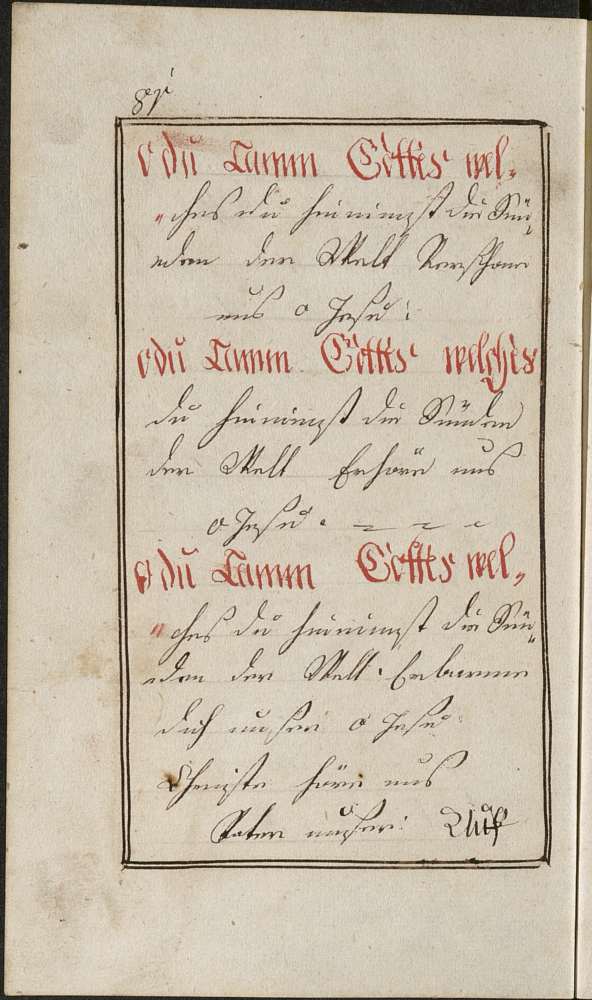 O du Lamm Gottes wel=
"ches du hinnimst die Sün=
nden der Welt Verschone
uns o Jesu:
O du Lamm Gottes welches
du hinnimst die Sünden
der Welt Erhöre uns
o Jesu.
O du Lamm Gottes wel=
"ches du hinnimst die Sün=
nden der Welt. Erbarme
dich unser o Jesu
Christe höre uns
Vater unser: